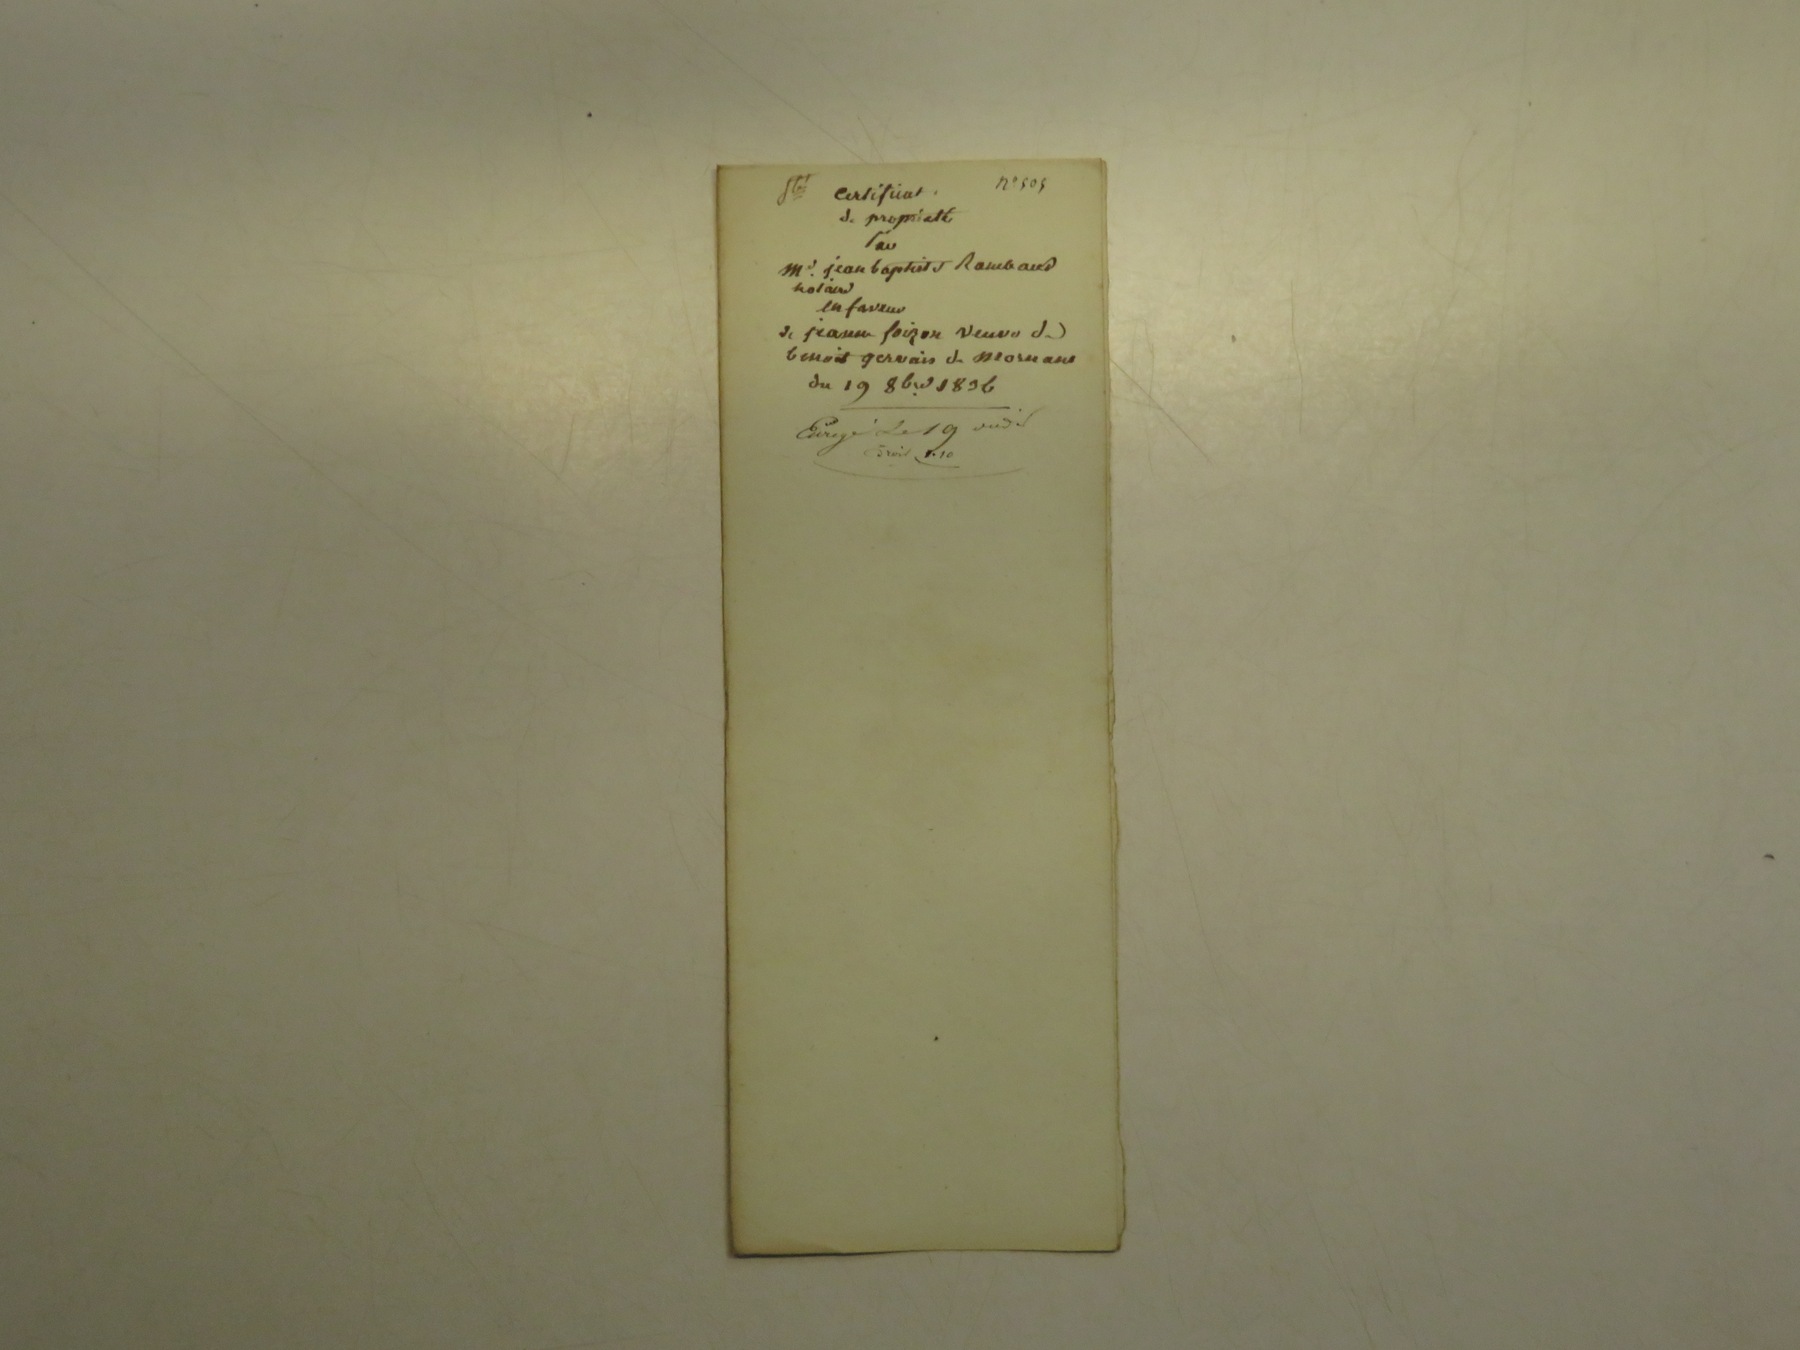 nº 505
Certificat
de propriété
Par
Me. jean baptiste Rambaud
notaire
en faveur
de jeanne foizon veuve de
benoit gervais de Mornant
du 19 8bre 1836
Enregé Le 19 dudit
Droit 1.10